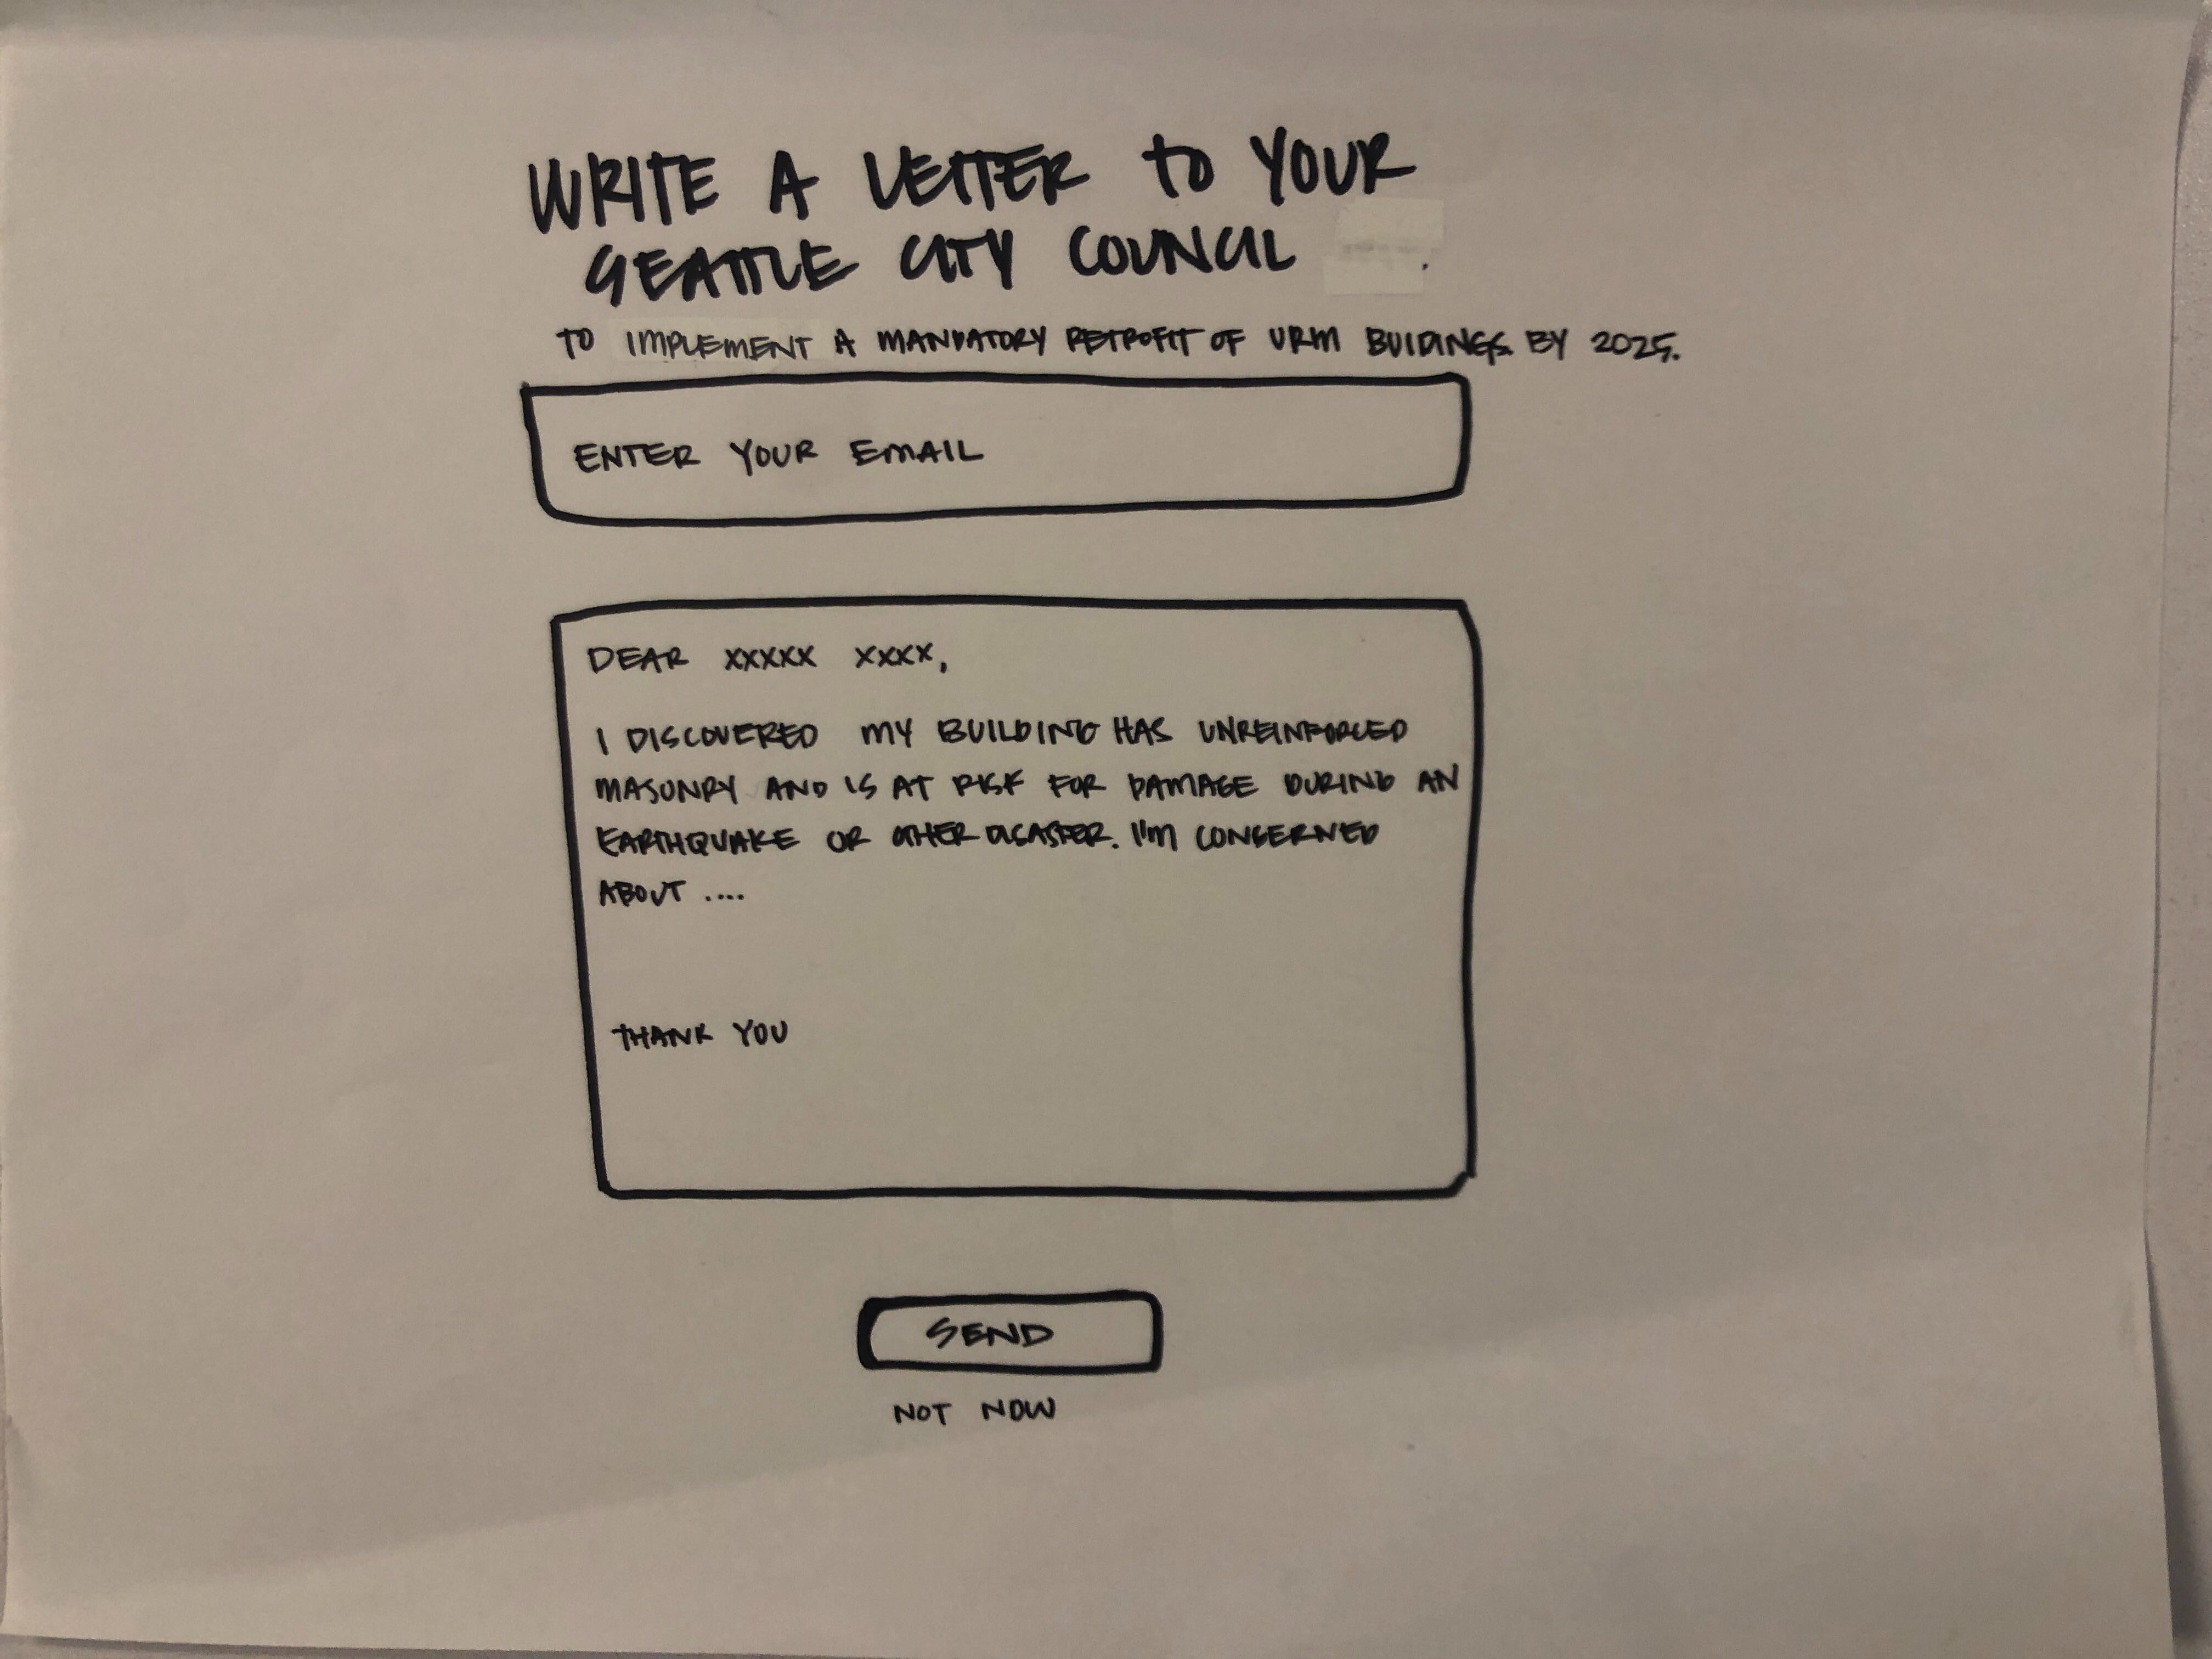 WRITE A LETTER TO YOUR
SEATTLE CITY COUNCIL
TO IMPLEMENT A MANDATORY RETROFIT OF URM BUIDINGS BY 2025.
ENTER YOUR EMAIL
DEAR XXXXX XXXX,
I DISCOVERED MY BUILDING HAS UNREINFORCED
MASONRY AND IS AT RISK FOR DAMAGE DURING AN
EARTHQUAKE OR OTHER DISASTER. I'M CONCERNED
ABOUT ....
THANK YOU
SEND
NOT NOW